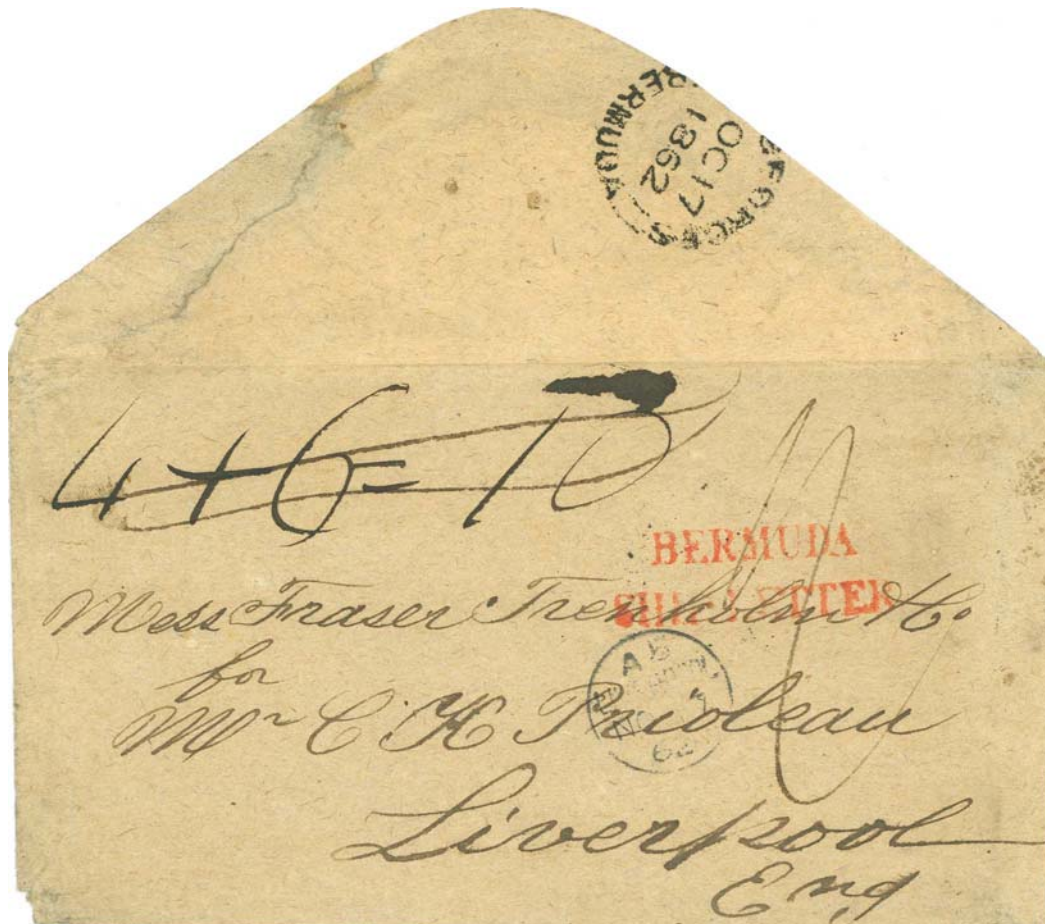 ST GEORGE'S
BERMUDA
OC 17
1862
4+6=10
BERMUDA
SHIP LETTER
Mess Fraser Trenholm & Co
for
Mr C K Prioleau
Liverpool
Eng